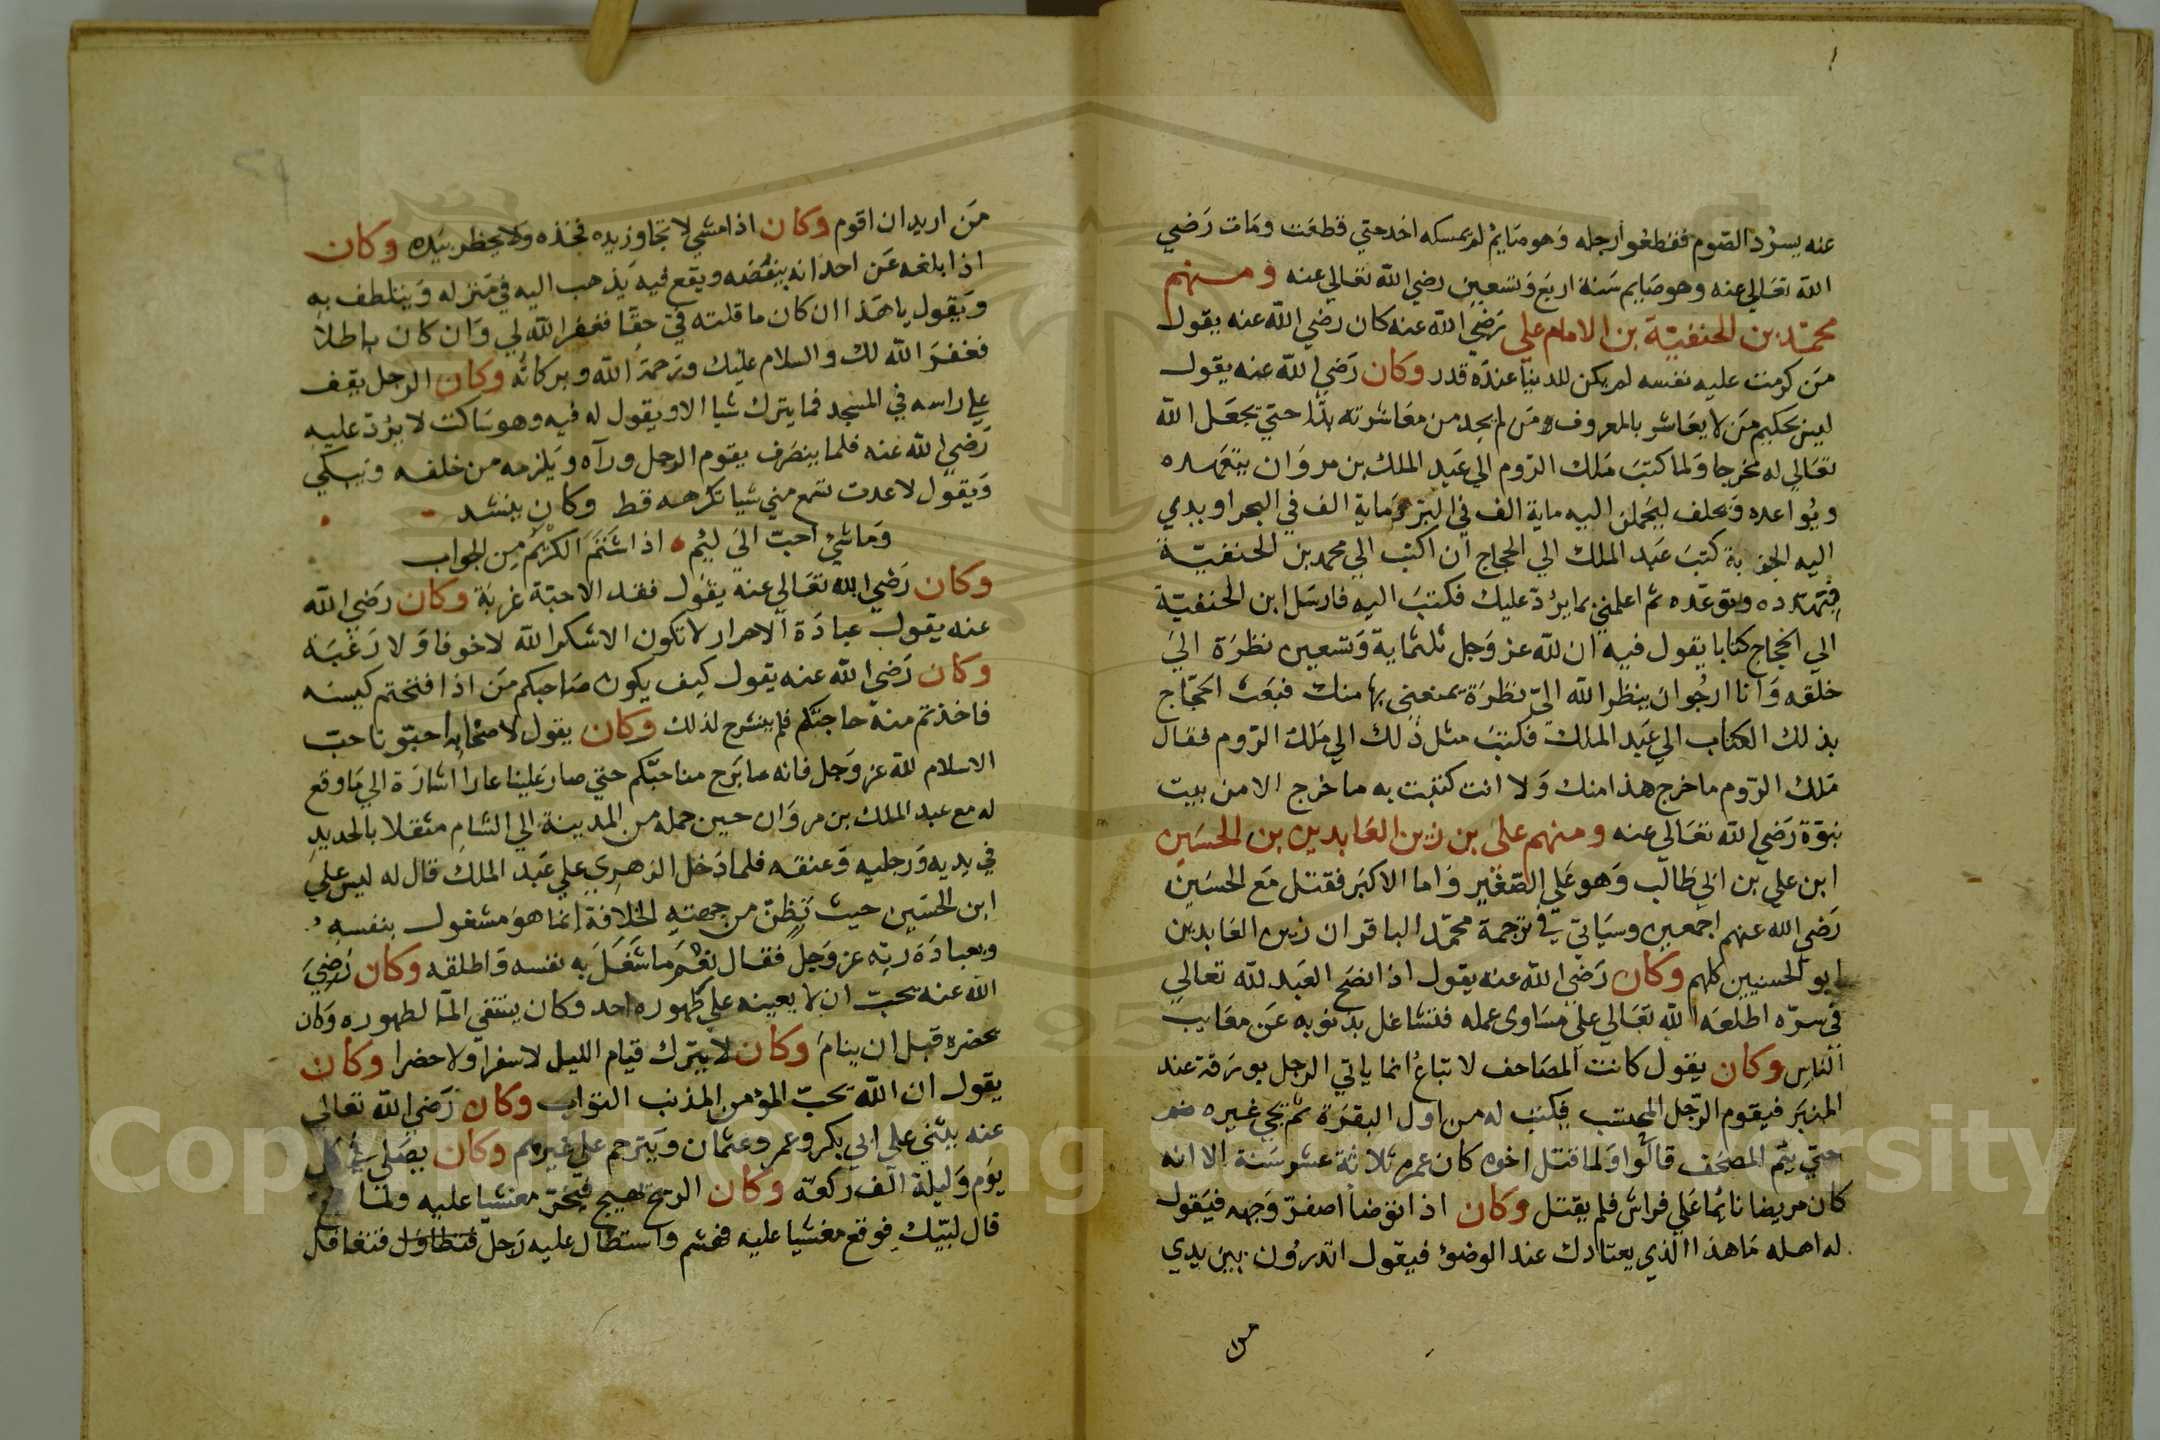 عنه يسرد الصوم فقطعوا رجله وهو صايم لم يمسكه احد حتي قطعت ومات رضي
الله تعالي عنه وهو صايم سنة اربع وتسعين رضي الله تعالي عنه ومنهم
محمد بن الحنفية بن الامام علي رضي الله عنه كان رضي الله عنه يقول
من كرمت عليه نفسه لم يكن للدنيا عنده قدر وكان رضي الله عنه يقول
ليس بحكيم من لا يعاشر بالمعروف من لم يجد من معاشرته بدا حتي يجعل الله
تعالي له مخرجا ولما كتب ملك الروم الي عبد الملك بن مروان يتهدده
ويواعده وحلف ليحملن اليه ماية الف في البر وماية الف في البحر او يدي
اليه الجزية كتب عبد الملك الي الحجاج ان اكتب الي محمد بن الحنفية
فتهدده وتوعده ثم اعلمني بما يرد عليك فكتب اليه فارسل ابن الحنفية
الي الحجاج كتابا يقول فيه ان لله عز وجل ثلثماية وتسعين نظرة الي
خلقه وانا ارجوا ان ينظر الله الي نظرة يمنعني بها منك فبعث الحجاج
بذلك الكتاب الي عبد الملك فكتب مثل ذلك الي ملك الروم فقال
ملك الروم ما خرج هذا منك ولا انت كتبت به ما خرج الا من بيت
نبوة رضي الله تعالي عنه ومنهم علي بن زين العابدين بن الحسين
ابن علي بن ابي طالب وهو علي الصغير واما الاكبر فقتل مع الحسين
رضي الله عنهم اجمعين وسياتي في ترجمة محمد الباقر ان زين العابدين
ابو الحسنيين كلهم وكان رضي الله عنه يقول اذا نصح العبد لله تعالي
في سره اطلعه الله تعالي علي مساوي عمله فتشاغل بذنوبه عن معايب
الناس وكان يقول كانت المصاحف لا تباع انما ياتي الرجل بورقة عند
المنبر فيقوم الرجل المحتسب فيكتب له من اول البقرة ثم يجي غيره
حتي يتم المصحف قالوا ولما قتل اخوه كان عمره ثلاثة عشر سنة الا انه
كان مريضا نائما علي فراش فلم يقتل وكان اذا توضا اصفر وجهه فيقول
له اهله ما هذا الذي يعتادك عند الوضوء فيقول اتدرون بين يدي
من اريد ان اقوم وكان اذا مشي لا تجاوز يده فخذه ولا يخطر بيده وكان
اذا بلغه عن احد انه ينقصه ويقع فيه يذهب اليه في منزله ويتلطف به
ويقول يا هذا ان كان ما قلته في حقا فغفر الله لي وان كان باطلا
فغفر الله لك والسلام عليك ورحمة الله وبركاته وكان الرجل يقف
علي راسه في المسجد فما يترك شيا الا ويقول له فيه وهو ساكت لا يرد عليه
رضي الله عنه فلما ينصرف يقوم الرجل ورآه ويلزمه من خلفه ويبكي
ويقول لا عدت تسمع مني شيا تكرهه قط وكان ينشد
وما شئ احب الي ليئم اذا شتم الكريم من الجواب
وكان رضي الله تعالي عنه يقول فقد الاحبة غربة وكان رضي الله
عنه يقول عبادة الاحرار لا تكون الا شكرا لله لا خوفا ولا رغبة
وكان رضي الله عنه يقول كيف يكون صاحبكم من اذا فتحتم كيسه
فاخذتم منه حاجتكم فلم ينشرح لذلك وكان يقول لاصحابه احبونا حب
الاسلام لله عز وجل فانه ما برح منا حبكم حتي صار علينا عارا اشارة الي ما وقع
له مع عبد الملك بن مروان حين حمله من المدينة الي الشام مثقلا بالحديد
في يديه ورجليه وعنقه فلما دخل الزهري علي عبد الملك قال له ليس علي
ابن الحسين حيث تظن من جهته الخلافة انما هو مشغول بنفسه
وبعبادة ربه عز وجل فقال نعم ما شغل به نفسه واطلقه وكان رضي
الله عنه يحب ان لا يعينه علي طهوره احد وكان يستقي الما لطهوره وكان
يحضره قبل ان ينام وكان لا يترك قيام الليل لا سفرا ولا حضرا وكان
يقول ان الله يحب المؤمن المذنب التواب وكان رضي الله تعالي
عنه يثني علي ابي بكر وعمر وعثمان ويترحم علي غيرهم وكان يصلي في كل
يوم وليلة الف ركعة وكان الريح تهيج فيخر مغشيا عليه ولما
قال لبيك فوقع مغشيا عليه فهشم واستطال عليه رجل فتطاول فتغافل